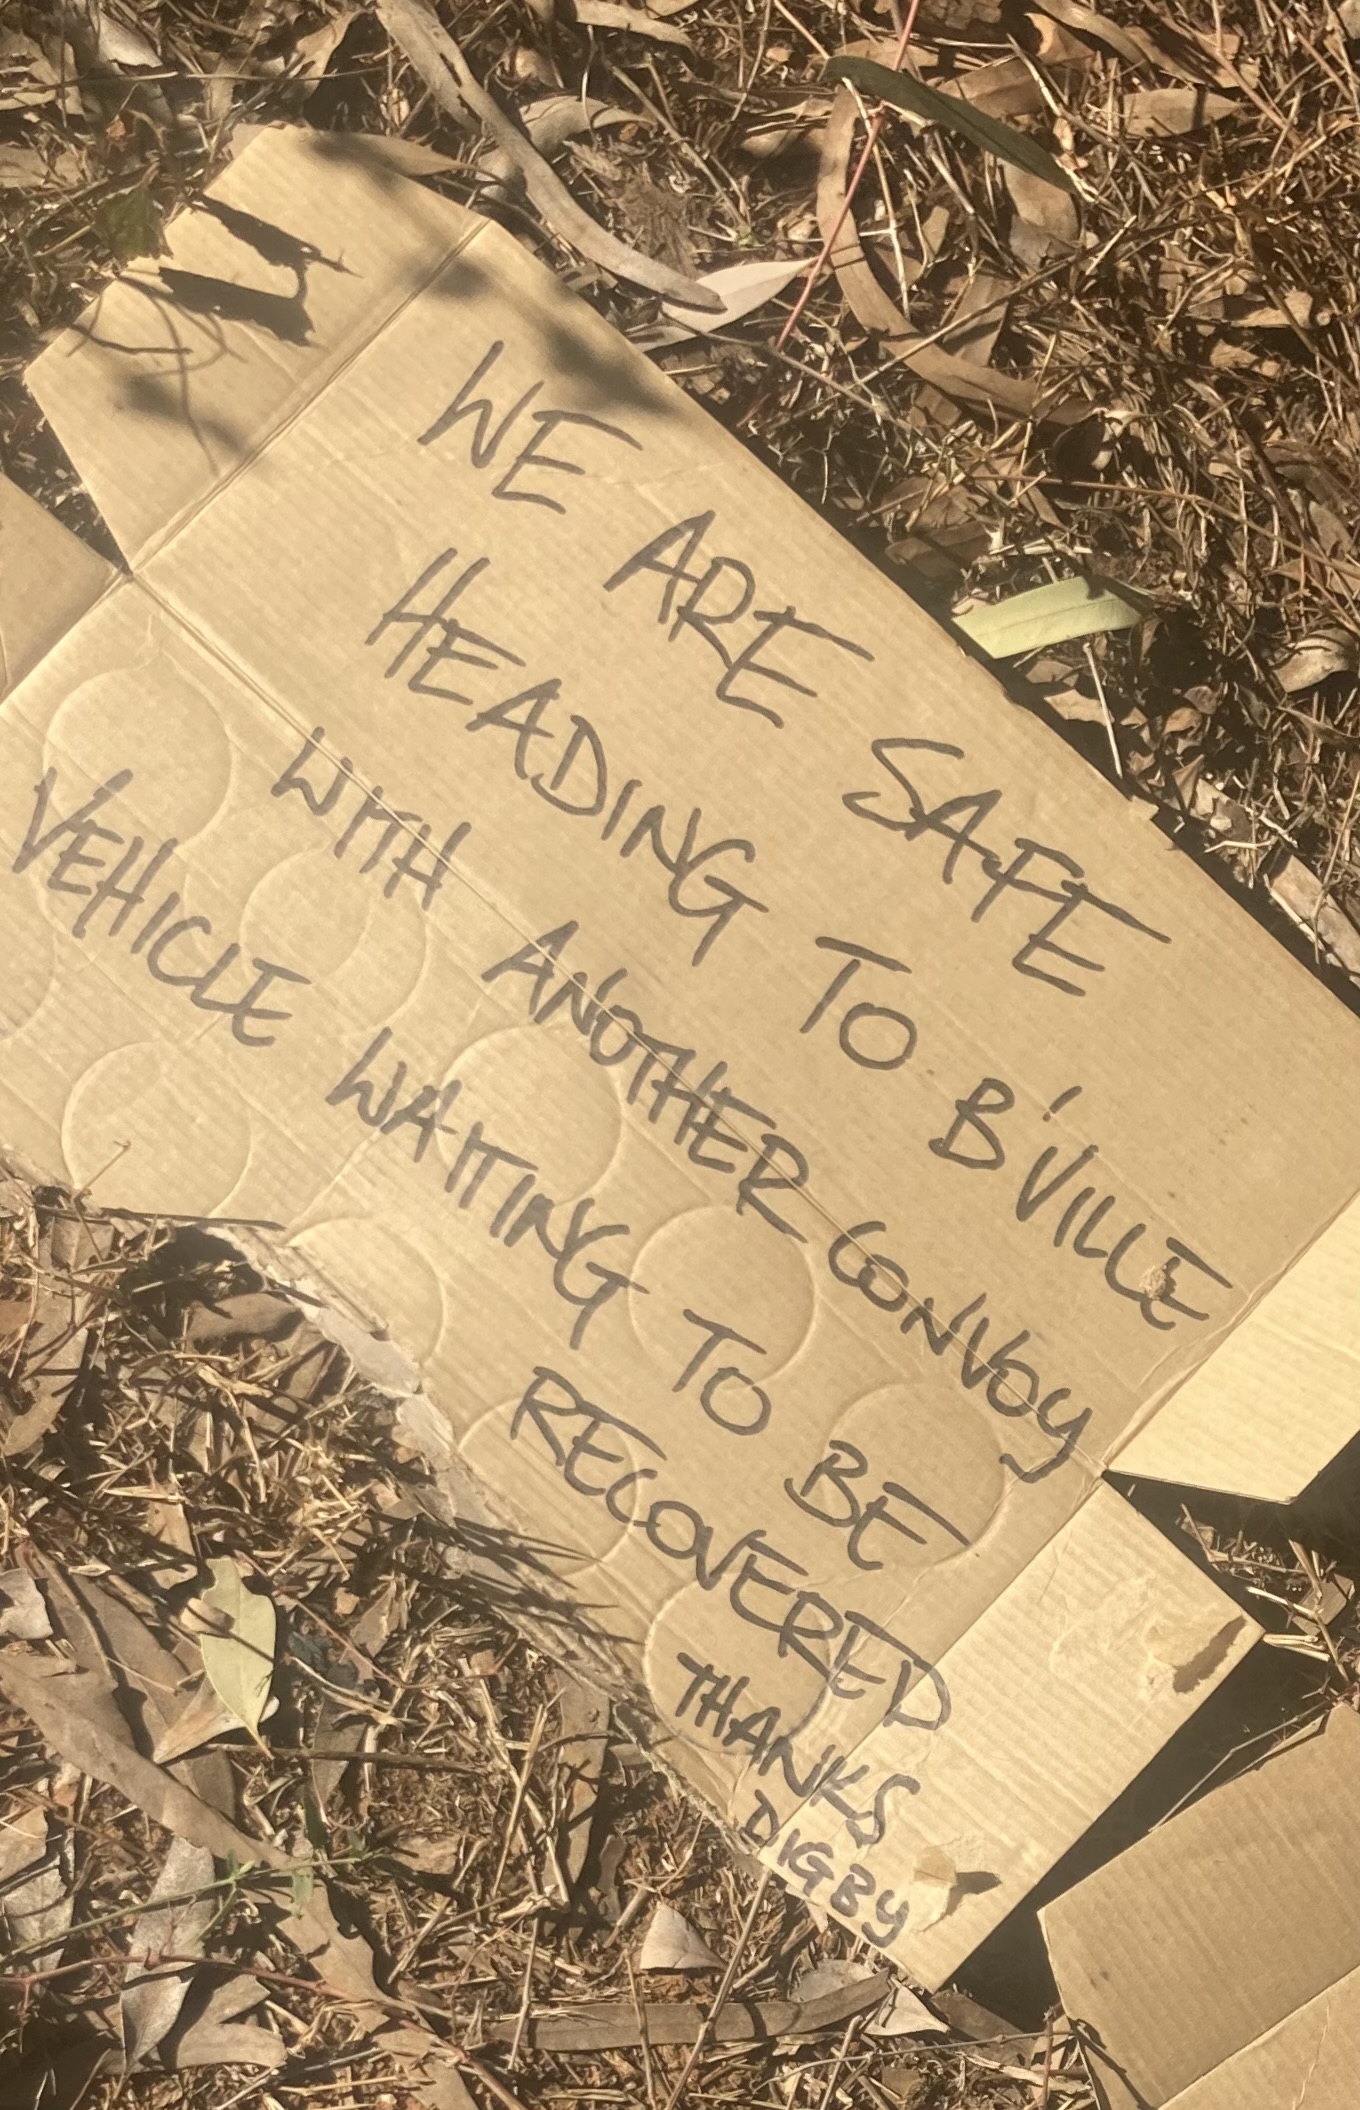 WE ARE SAFE
HEADING TO B'VILLE
WITH ANOTHER CONVOY
VEHICLE WAITING TO BE
RECOVERED
THANKS
DIGBY